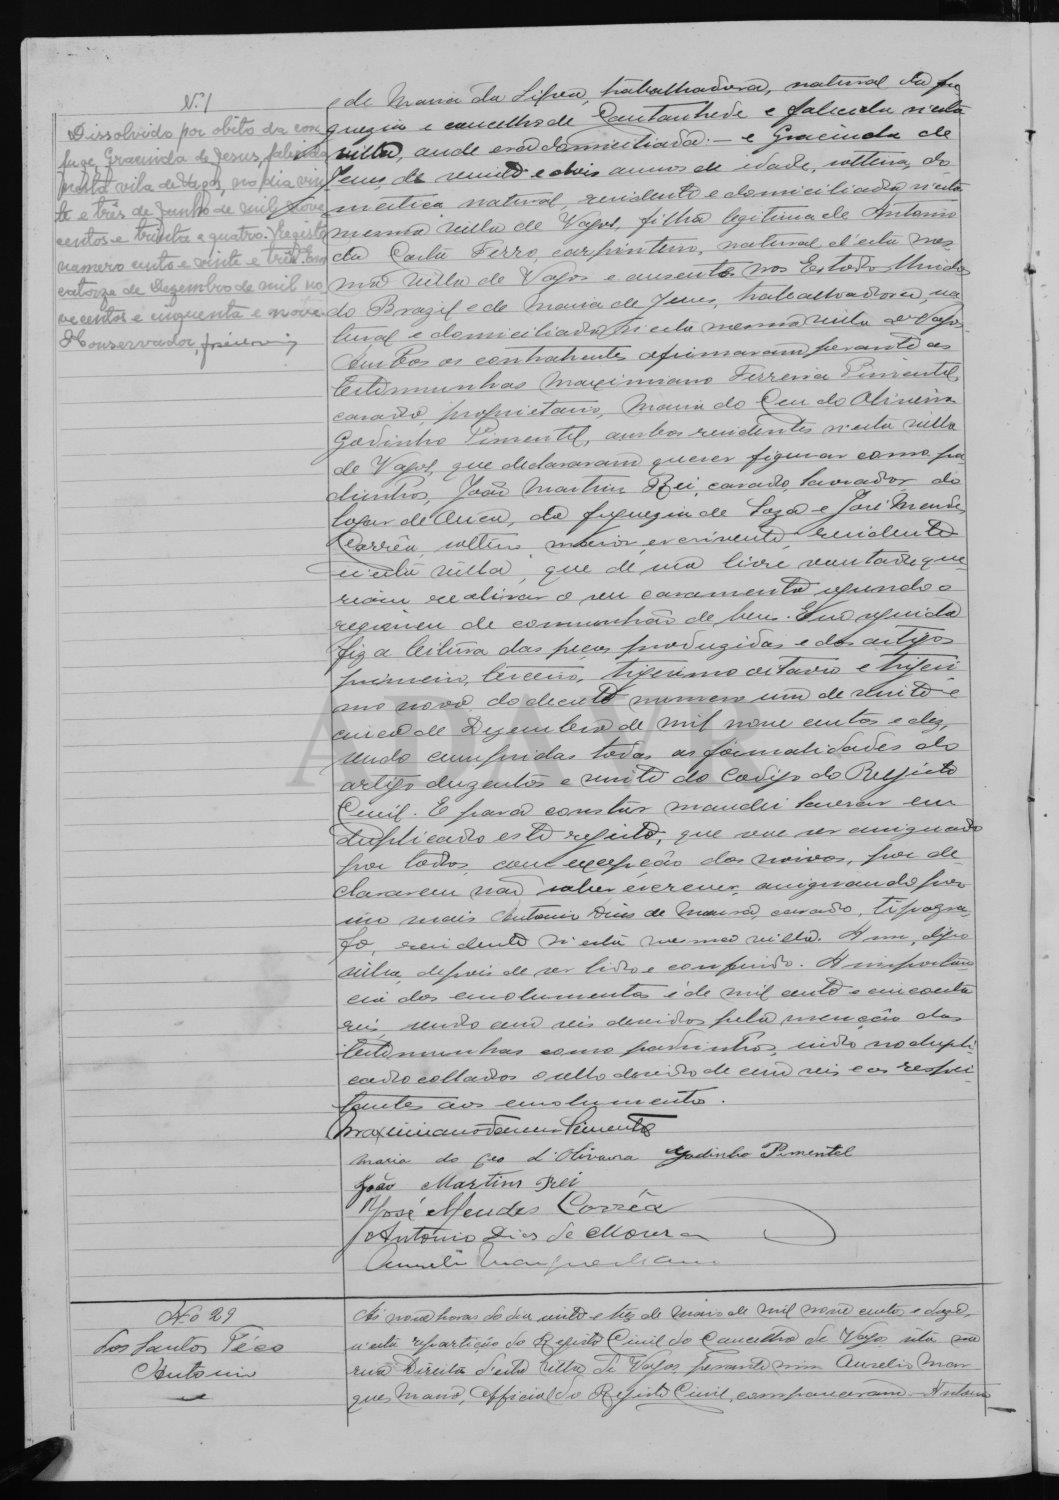 N.1
Dissolvido por obito da con
juge, Gracinda de Jesus, falecida
nesta vila de Vagos, no dia vin
te e três de Junho de mil nove
centos e trinta e quatro. Registo
numero cento e vinte e três. Em
catorze de Dezembro de mil no
vecentos e cinquenta e nove.
O Conservador,
e de Maria da Silva, trabalhadora, natural da fre
guezia e concelho de Cantanhede e falecida n'esta
villa, onde era domiciliada. — e Gracinda de
Jesus, de vinte e dois annos de idade, solteira, do
mestica natural, residente e domiciliada n'esta
mesma villa de Vagos, filha legitima de Antonio
da Costa Ferro, carpinteiro, natural d'esta mes
ma villa de Vagos e ausente nos Estados Unidos
do Brazil e de Maria de Jesus, trabalhadora, na
tural e domiciliada n'esta mesma villa de Vagos.
Ambos os contrahentes afirmaram perante as
testemunhas Maximiano Ferreira Pimentel,
casado, proprietario, Maria do Ceu de Oliveira
Godinho Pimentel, ambos residentes n'esta villa
de Vagos, que declararam querer figurar como pa
drinhos, João Martins Rei, casado, lavrador do
logar de, da freguezia de Soza e José Mendes
Corrêa, solteiro, maior, escrevente, residente
n'esta villa, que de sua livre vontade que
riam realisar o seu casamento segundo o
regimen de communhão de bens. Em seguida
fiz a leitura das peças produzidas e dos artigos
primeiro, terceiro, trigesimo oitavo e trigesi
mo nono do decreto numero um de vinte e
cinco de Dezembro de mil nove centos e dez,
sendo cumpridas todas as formalidades do
artigo duzentos e vinte do Codigo do Registo
Civil. E para constar mandei lavrar em
duplicado este registo, que vae ser assignado
por todos, com excepção dos noivos, por de
clararem não saber escrever, assignando por
isso mais Antonio Dias de Moura, casado, tipogra
fo, residente n'esta mesma villa. A um, digo
villa, depois de ser lido e conferido. A importan
cia dos emolumentos é de mil cento e cincoenta
reis, sendo cem reis devidos pela menção das
testemunhas como padrinhos, indo no dupli
cado collados o sello devido de cem reis e os respei
tantes aos emolumentos.
Maximiano Ferreira Pimentel
Maria do Ceo d'Oliveira Godinho Pimentel
João Martins Rei
José Mendes Corrêa
Antonio Dias de Moura
Aurelio Marques Mano
N.o 29
Dos Santos Têco
Antonio
Ás nove horas do dia vinte e tres de Maio de mil nove centos e doze,
n'esta repartição do Registo Civil do Concelho de Vagos, sita na
rua Direita d'esta Villa de Vagos, perante mim Aurelio Mar
ques Mano, Official do Registo Civil, compareceram Antonio
ADAVR